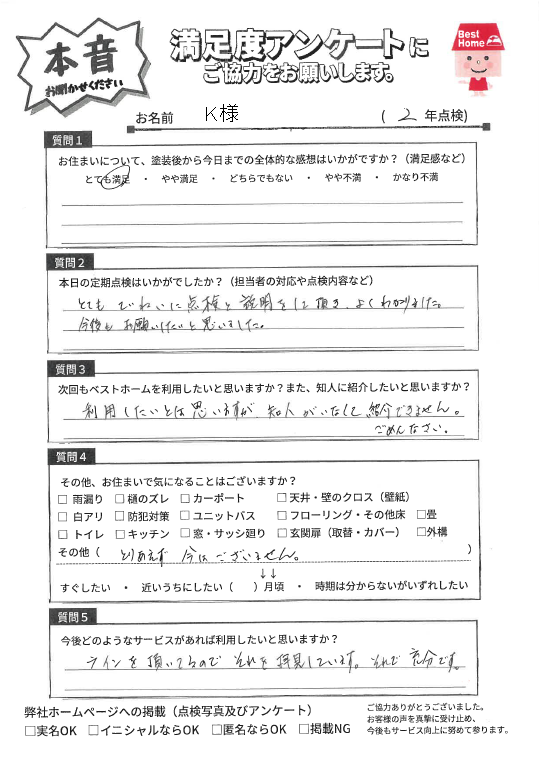 本音
お聞かせください
満足度アンケートに
ご協力をお願いします。
Best Home
お名前 K様 ( 2 年点検)
質問1
お住まいについて、塗装後から今日までの全体的な感想はいかがですか?（満足感など）
とても満足 ・ やや満足 ・ どちらでもない ・ やや不満 ・ かなり不満
質問2
本日の定期点検はいかがでしたか?（担当者の対応や点検内容など）
とても ていねいに点検と説明をして頂き、よくわかりました。
今後も お願いしたいと思いました。
質問3
次回もベストホームを利用したいと思いますか?また、知人に紹介したいと思いますか?
利用したいとは思いますが、知人がいなくて紹介できません。
ごめんなさい。
質問4
その他、お住まいで気になることはございますか?
□ 雨漏り □ 樋のズレ □ カーポート □ 天井・壁のクロス（壁紙）
□ 白アリ □ 防犯対策 □ ユニットバス □ フローリング・その他床 □畳
□ トイレ □ キッチン □ 窓・サッシ廻り □ 玄関扉（取替・カバー） □外構
その他（ とりあえず 今は ございません。 ）
↓↓
すぐしたい ・ 近いうちにしたい（ ）月頃 ・ 時期は分からないがいずれしたい
質問5
今後どのようなサービスがあれば利用したいと思いますか?
ラインを頂いてるので それを拝見しています。それで充分です。
弊社ホームページへの掲載（点検写真及びアンケート）
□実名OK □イニシャルならOK □匿名ならOK □掲載NG
ご協力ありがとうございました。
お客様の声を真摯に受け止め、
今後もサービス向上に努めて参ります。